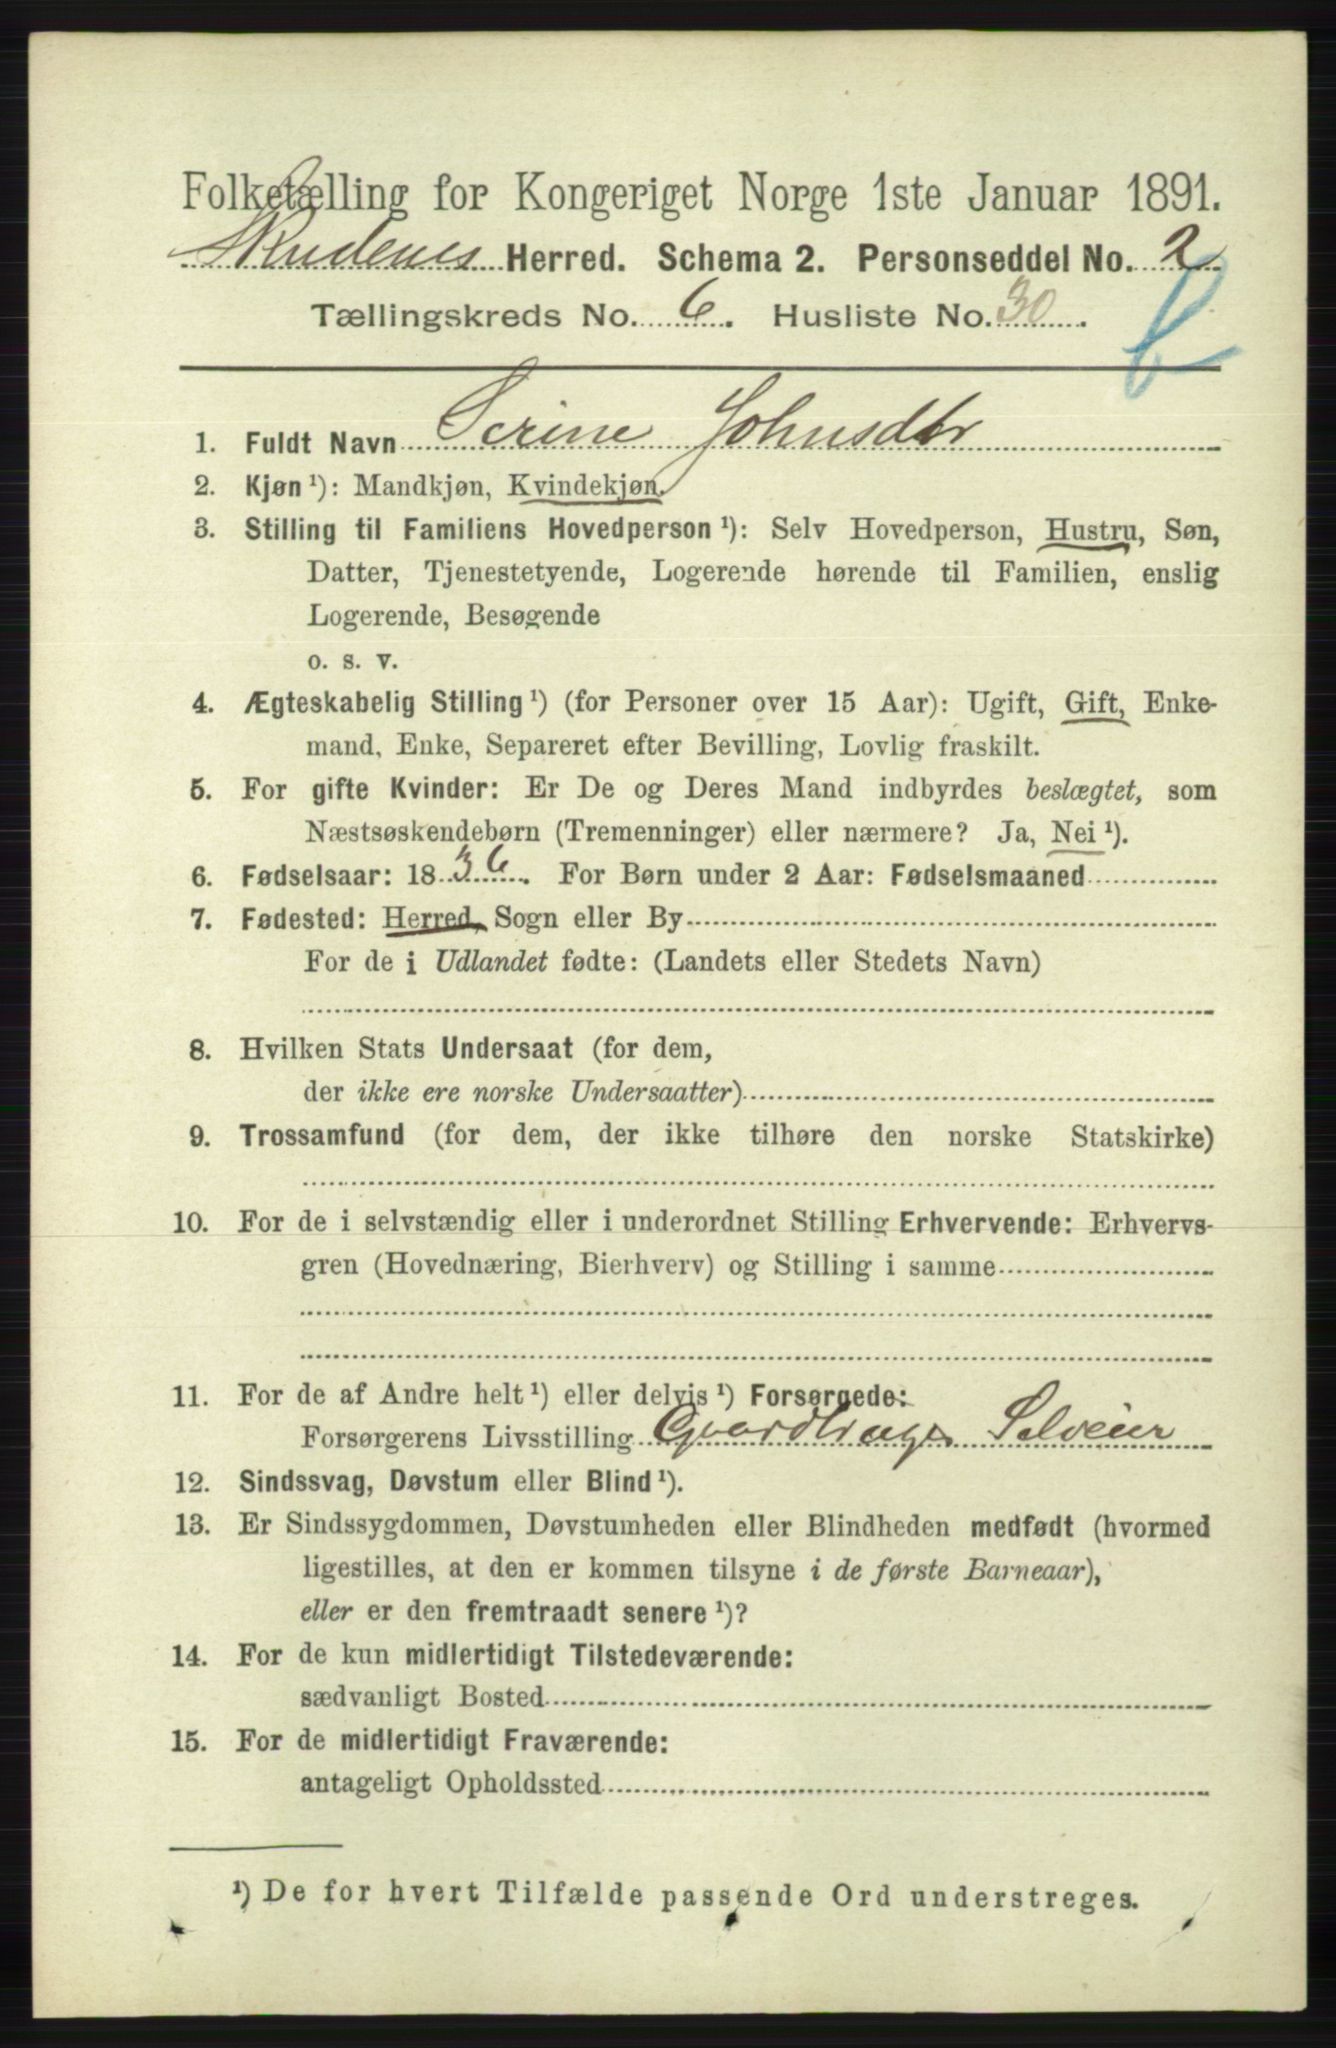 Folketælling for Kongeriget Norge 1ste Januar 1891.
Skudenes Herred. Schema 2. Personseddel No. 2
Tællingskreds No. 6. Husliste No. 30.
1. Fuldt Navn Serine Johnsdtr
2. Kjøn ¹): Mandkjøn, Kvindekjøn.
3. Stilling til Familiens Hovedperson ¹): Selv Hovedperson, Hustru, Søn,
Datter, Tjenestetyende, Logerende hørende til Familien, enslig
Logerende, Besøgende
o. s. v.
4. Ægteskabelig Stilling ¹) (for Personer over 15 Aar): Ugift, Gift, Enke-
mand, Enke, Separeret efter Bevilling, Lovlig fraskilt.
5. For gifte Kvinder: Er De og Deres Mand indbyrdes beslægtet, som
Næstsøskendebørn (Tremenninger) eller nærmere? Ja, Nei ¹).
6. Fødselsaar: 1836. For Børn under 2 Aar: Fødselsmaaned
7. Fødested: Herred, Sogn eller By
For de i Udlandet fødte: (Landets eller Stedets Navn)
8. Hvilken Stats Undersaat (for dem,
der ikke ere norske Undersaatter)
9. Trossamfund (for dem, der ikke tilhøre den norske Statskirke)
10. For de i selvstændig eller i underordnet Stilling Erhvervende: Erhvervs-
gren (Hovednæring, Bierhverv) og Stilling i samme
11. For de af Andre helt ¹) eller delvis ¹) Forsørgede:
Forsørgerens Livsstilling Gaardbruger Selveier
12. Sindssvag, Døvstum eller Blind ¹).
13. Er Sindssygdommen, Døvstumheden eller Blindheden medfødt (hvormed
ligestilles, at den er kommen tilsyne i de første Barneaar),
eller er den fremtraadt senere ¹)?
14. For de kun midlertidigt Tilstedeværende:
sædvanligt Bosted
15. For de midlertidigt Fraværende:
antageligt Opholdssted
¹) De for hvert Tilfælde passende Ord understreges.